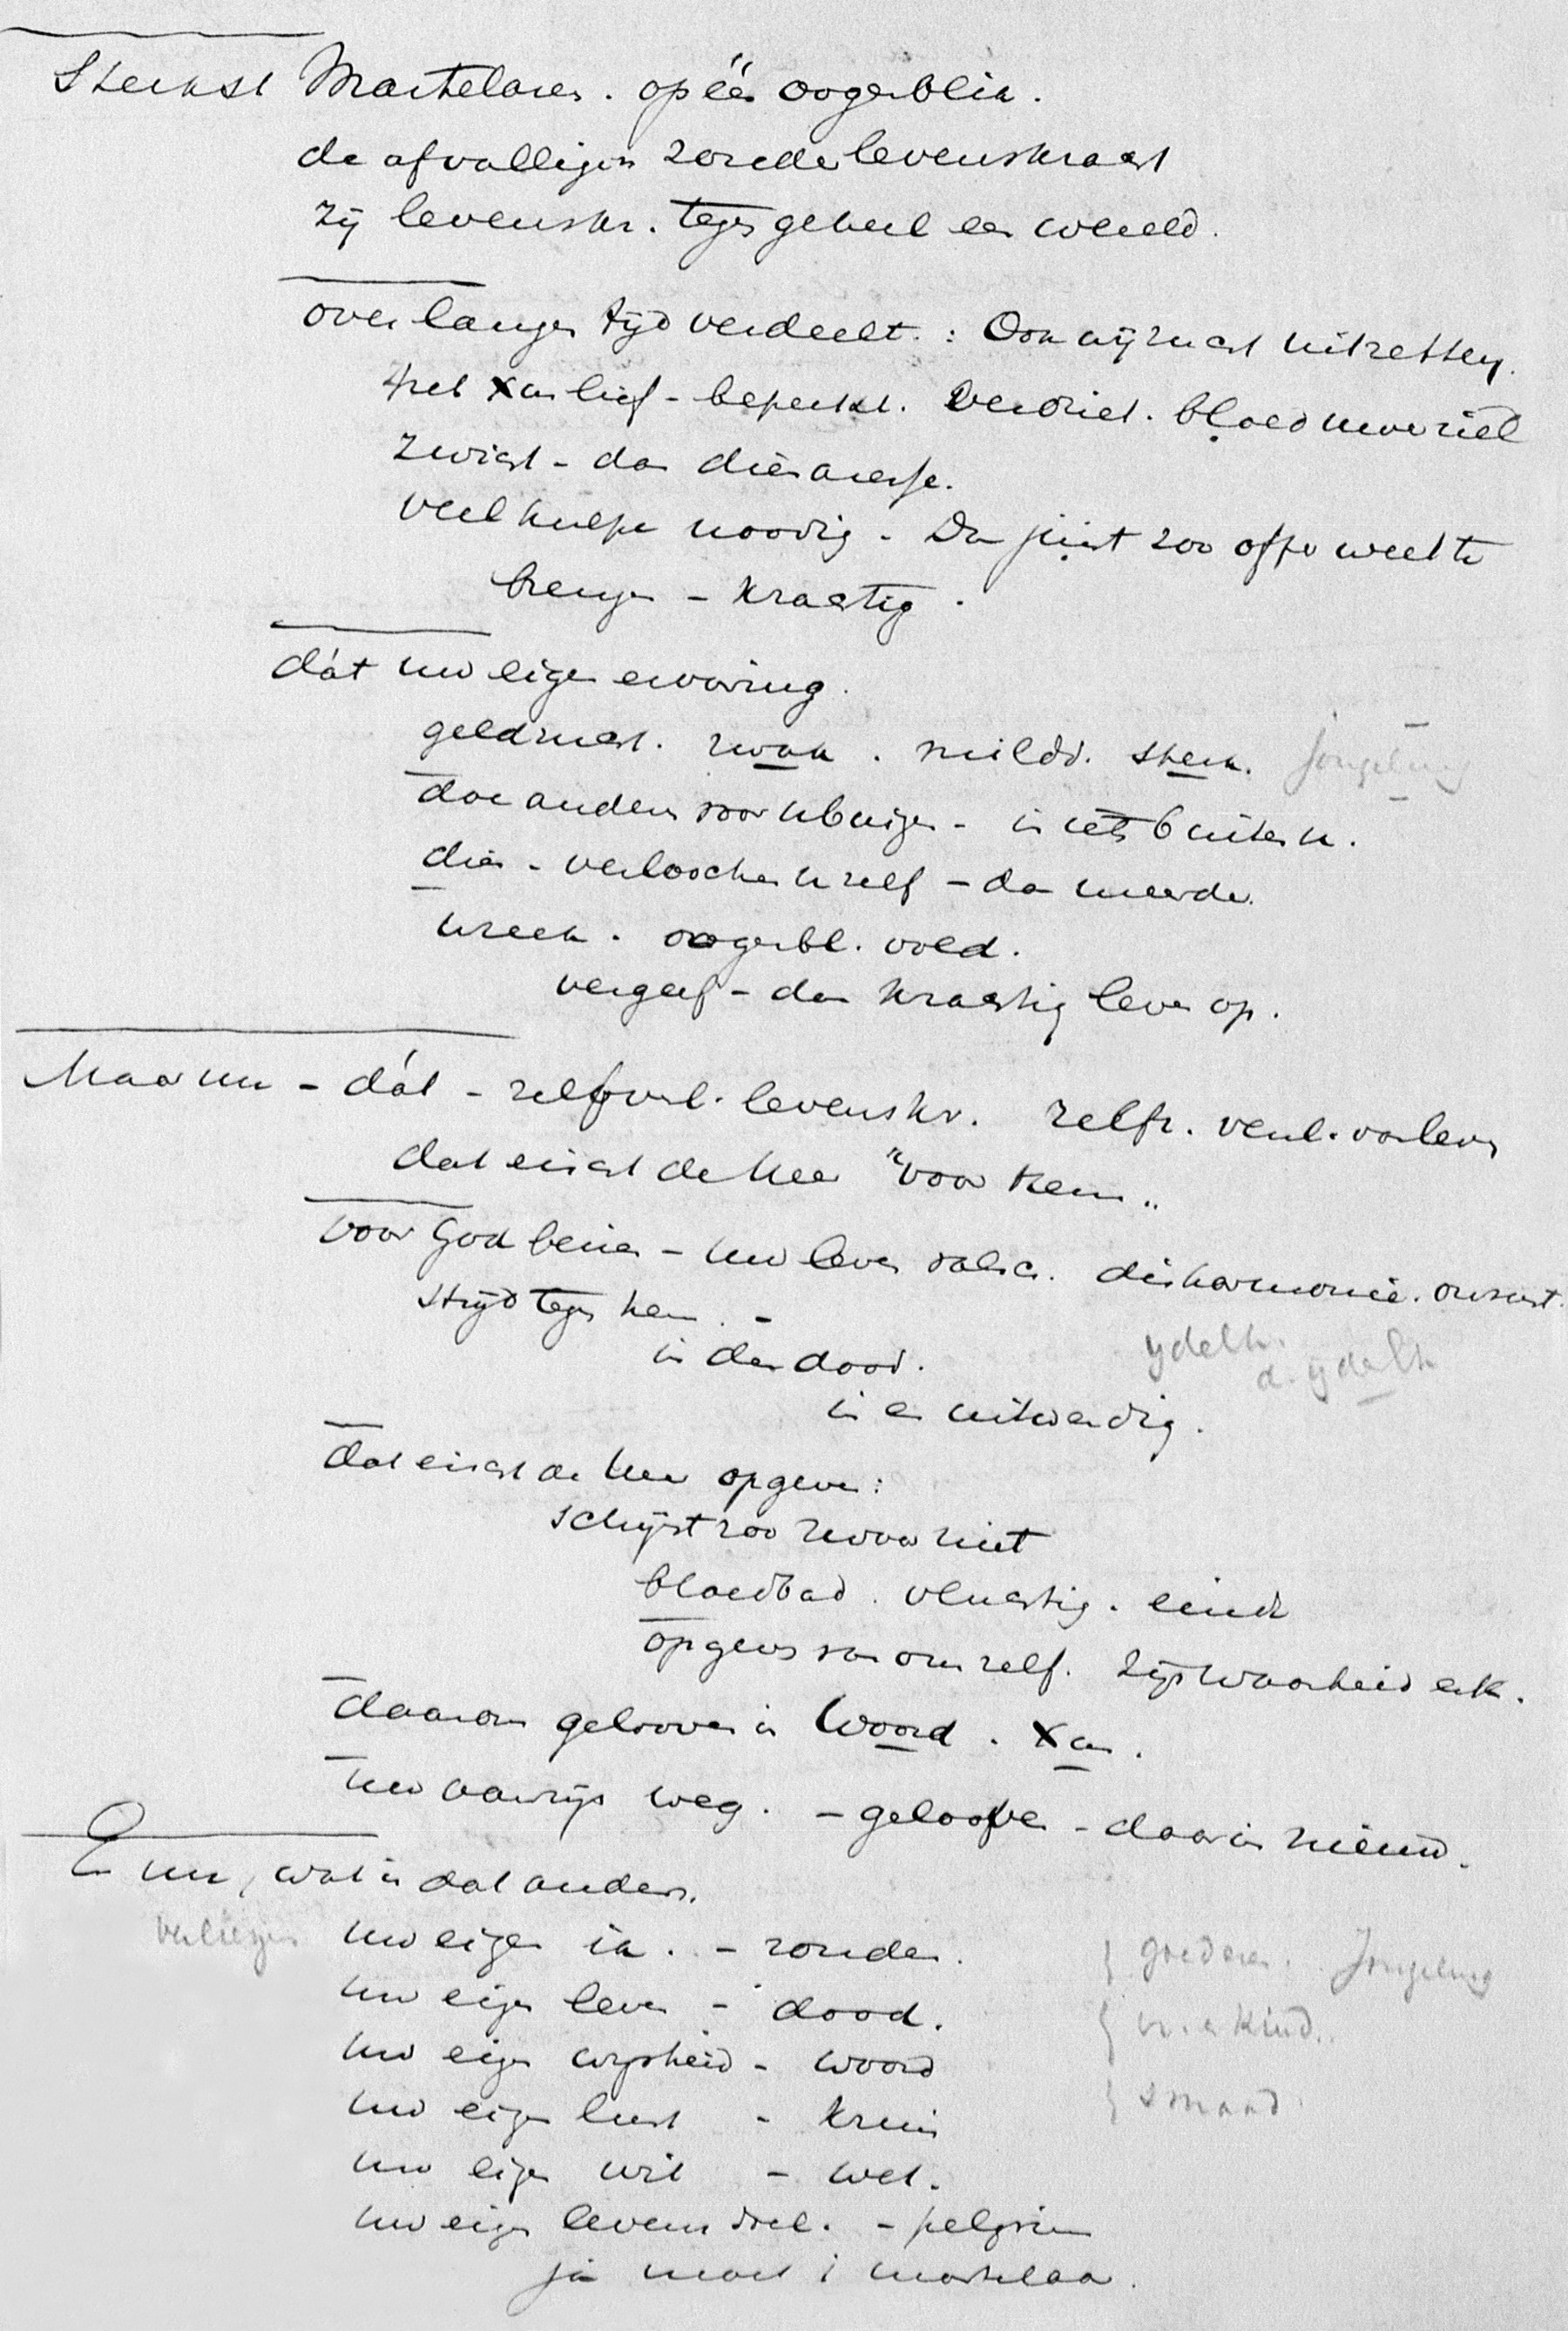 Sterkst Martelaren. op één oogenblik.
de afvalligen zonder levenskracht
zij levenskr. tegen geheel een wereld.
over langen tijd verdeelt. : Ook wij moet uitzetten.
Het Xen lief - beperkt. verdriet. bloed
zwist - dan
veel hulpe noodig - Dan juist zoo offer weet te
brengen - krachtig.
dát uw eigen ervaring.
geldzucht. zwak. mildd. sterk. jongeling
doe anderen voor u buigen - in iets buiten u.
dien - verloochen uzelf - dan meerder.
wreek. oogenbl. vold.
vergeef - dan krachtig leven op.
Maar nu - dát - zelfverl. levenskr. zelfz. verl. van leven
dat eischt de Heer "voor Hem"
voor God bezien - uw leven valsch. disharmonie. onrust.
strijd tegen hem. -
in den dood. ydelh.
d. ydelh
in en uitwendig.
dat eischt de Heer opgeven:
schijnt zoo zwaar niet
bloedbad. vluchtig. einde
opgeven van ons zelf. zijn waarheid erk.
daarom gelooven in Woord. Xen.
uw aanzijn weg. - gelooven - daarin nieuw.
En nu, wat is dat anders.
verliezen uw eigen ik. - zonder. } goederen. Jongeling
uw eigen leven - dood. { vr. en kind..
uw eigen wijsheid - woord
uw eigen lust - kruis } smaad
uw eigen wil - wet.
uw eigen levensdoel. - pelgrim
ja moet i martelaar.